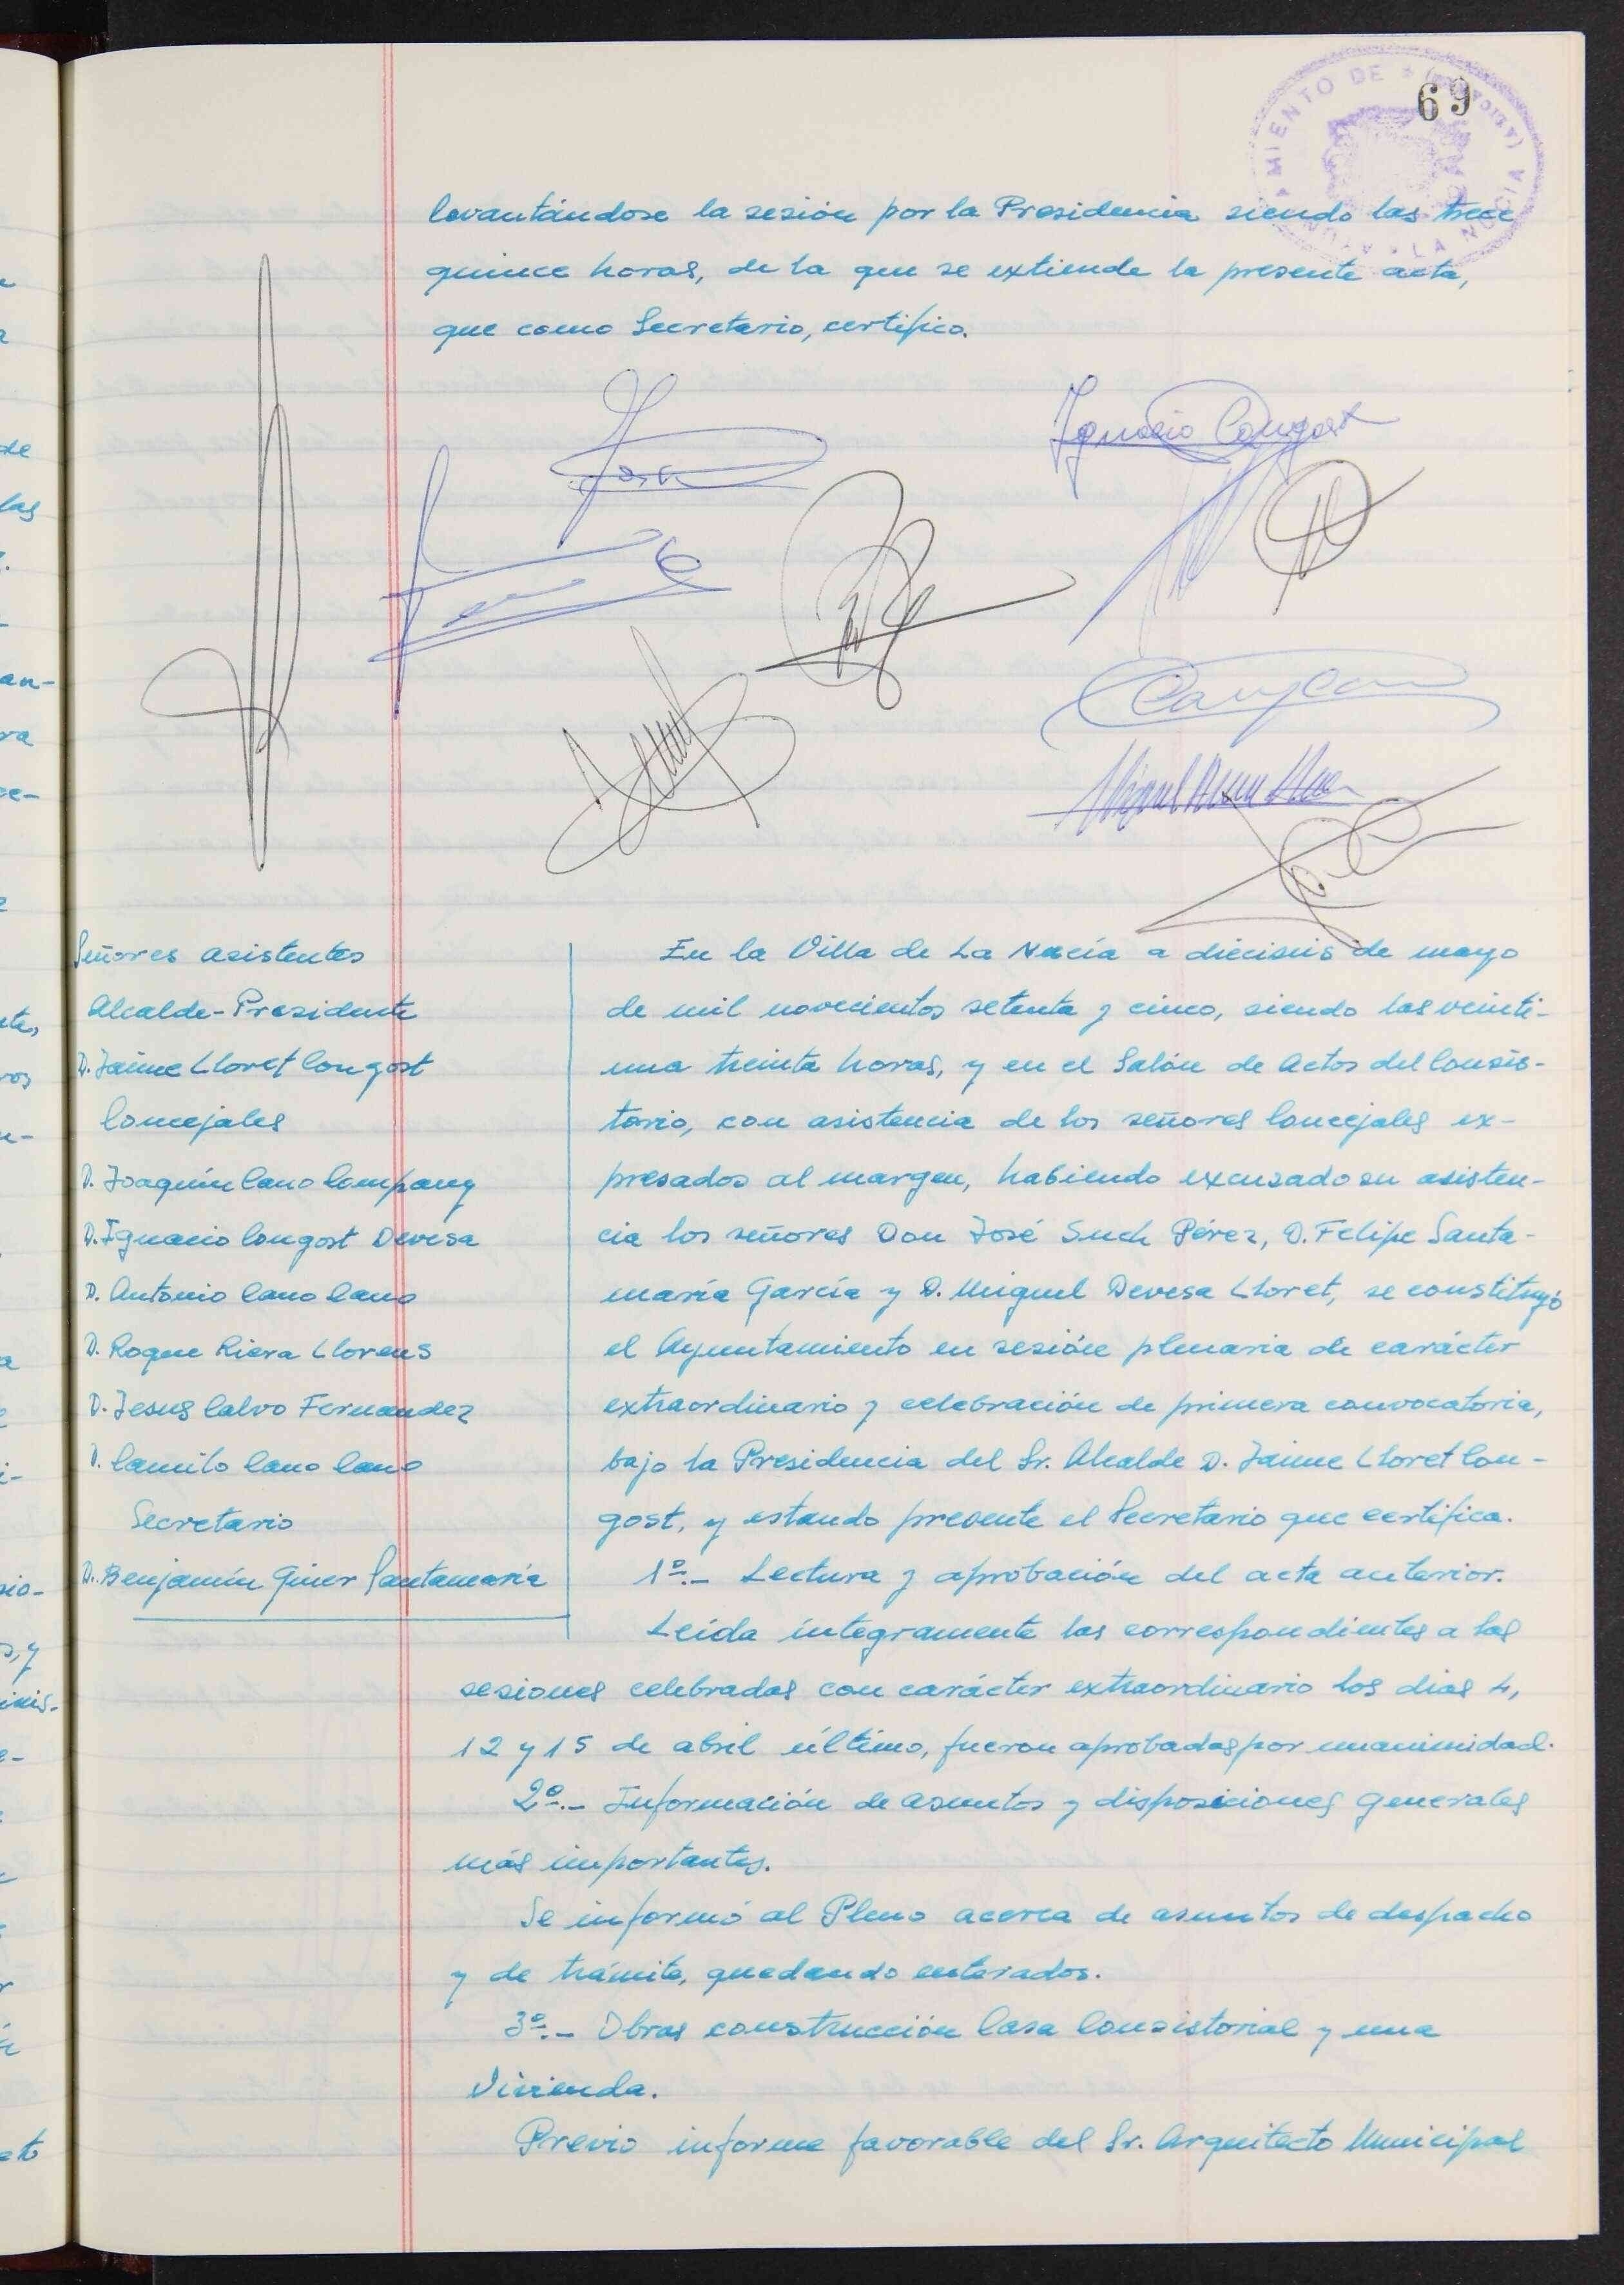 69
AYUNTAMIENTO DE LA NUCIA (ALICANTE)
levantándose la sesión por la Presidencia siendo las trece
quince horas, de la que se extiende la presente acta,
que como Secretario, certifico.
Ignacio Congost
Señores asistentes
Alcalde-Presidente
D. Jaime Lloret Congost
Concejales
D. Joaquín Cano Company
D. Ignacio Congost Devesa
D. Antonio Cano Cano
D. Roque Riera Llorens
D. Jesus Calvo Fernandez
D. Camilo Cano Cano
Secretario
D. Benjamín Giner Santamaría
En la Villa de La Nucía a dieciseis de mayo
de mil novecientos setenta y cinco, siendo las veinti-
una treinta horas, y en el Salón de Actos del Consis-
torio, con asistencia de los señores Concejales ex-
presados al margen, habiendo excusado su asisten-
cia los señores Don José Such Pérez, D. Felipe Santa-
maría García y D. Miguel Devesa Lloret, se constituyó
el Ayuntamiento en sesión plenaria de carácter
extraordinario y celebración de primera convocatoria,
bajo la Presidencia del Sr. Alcalde D. Jaime Lloret Con-
gost, y estando presente el Secretario que certifica.
1º.- Lectura y aprobación del acta anterior.
Leída íntegramente las correspondientes a las
sesiones celebradas con carácter extraordinario los dias 4,
12 y 15 de abril último, fueron aprobadas por unanimidad.
2º.- Información de asuntos y disposiciones generales
más importantes.
Se informó al Pleno acerca de asuntos de despacho
y de trámite, quedando enterados.
3º.- Obras construcción Casa Consistorial y una
vivienda.
Previo informe favorable del Sr. Arquitecto Municipal